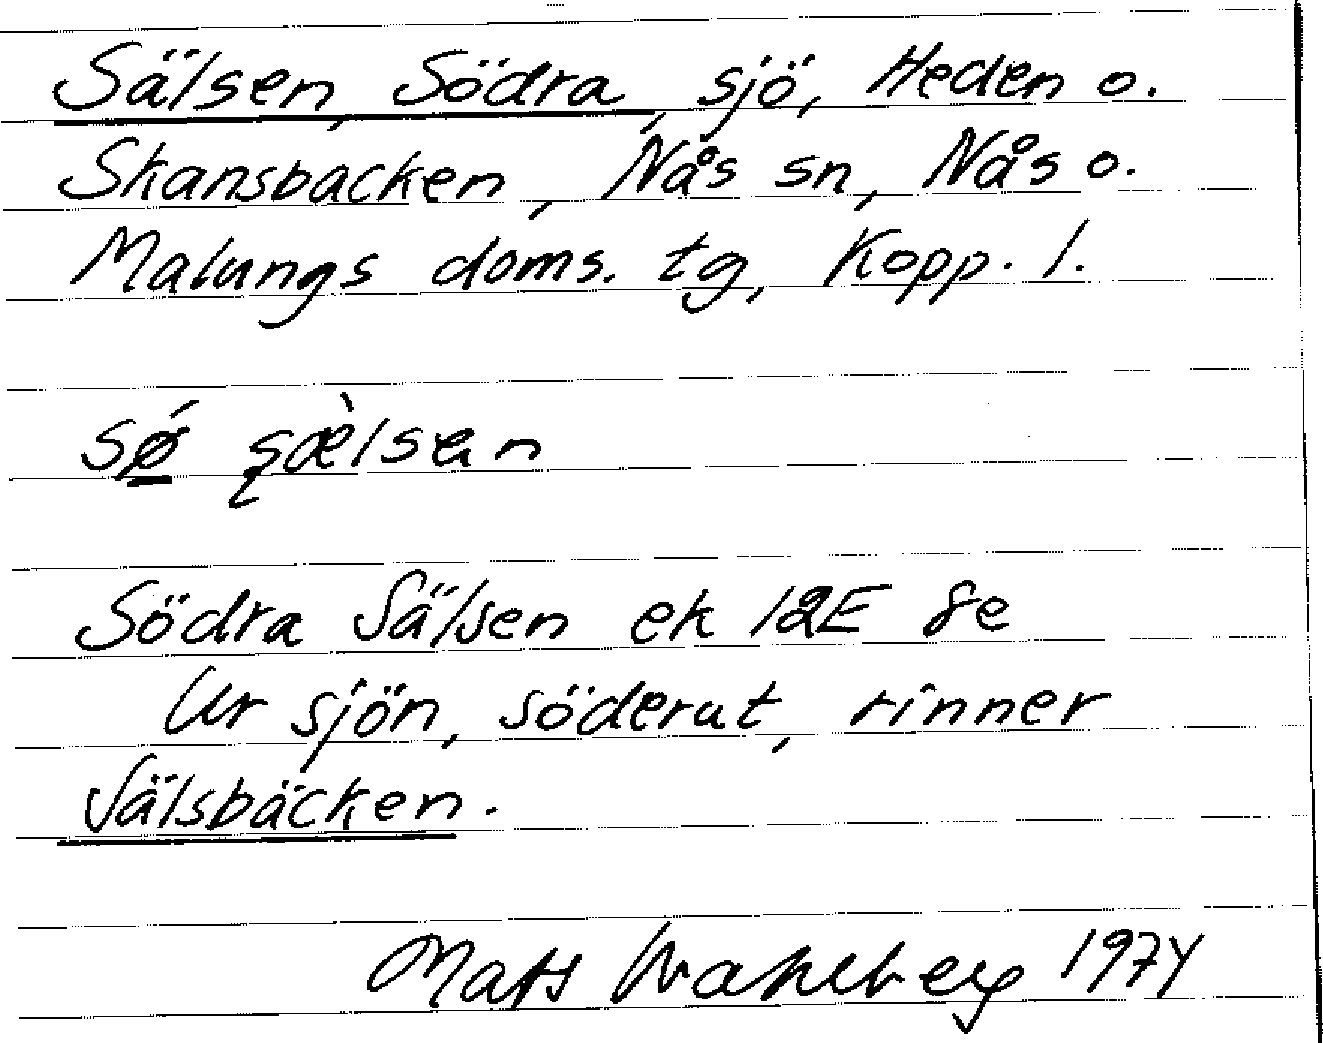 Sälsen, Södra, sjö, Heden o.
Skansbacken, Nås sn, Nås o.
Malungs doms. tg, Kopp. l.
sǿ sæ̀lsen
Södra Sälsen ek 12E 8e
Ur sjön, söderut, rinner
Sälsbäcken.
Mats Wahlberg 1974